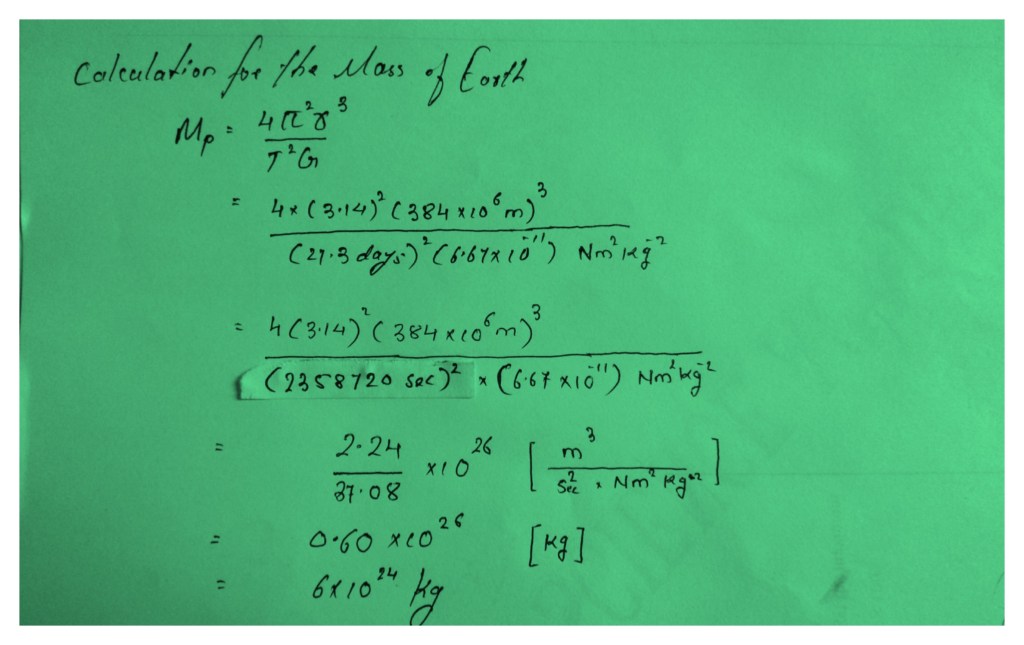 Calculation for the Mass of Earth
Mp = 4π²r³ / T²G
= 4×(3.14)²(384×10⁶m)³ / (27.3 days)²(6.67×10⁻¹¹) Nm²kg⁻²
= 4(3.14)²(384×10⁶m)³ / (2358720 sec)² × (6.67×10⁻¹¹) Nm²kg⁻²
= 2.24 / 37.08 ×10²⁶ [m³ / sec² × Nm² kg⁻²]
= 0.60 ×10²⁶ [kg]
= 6×10²⁴ kg